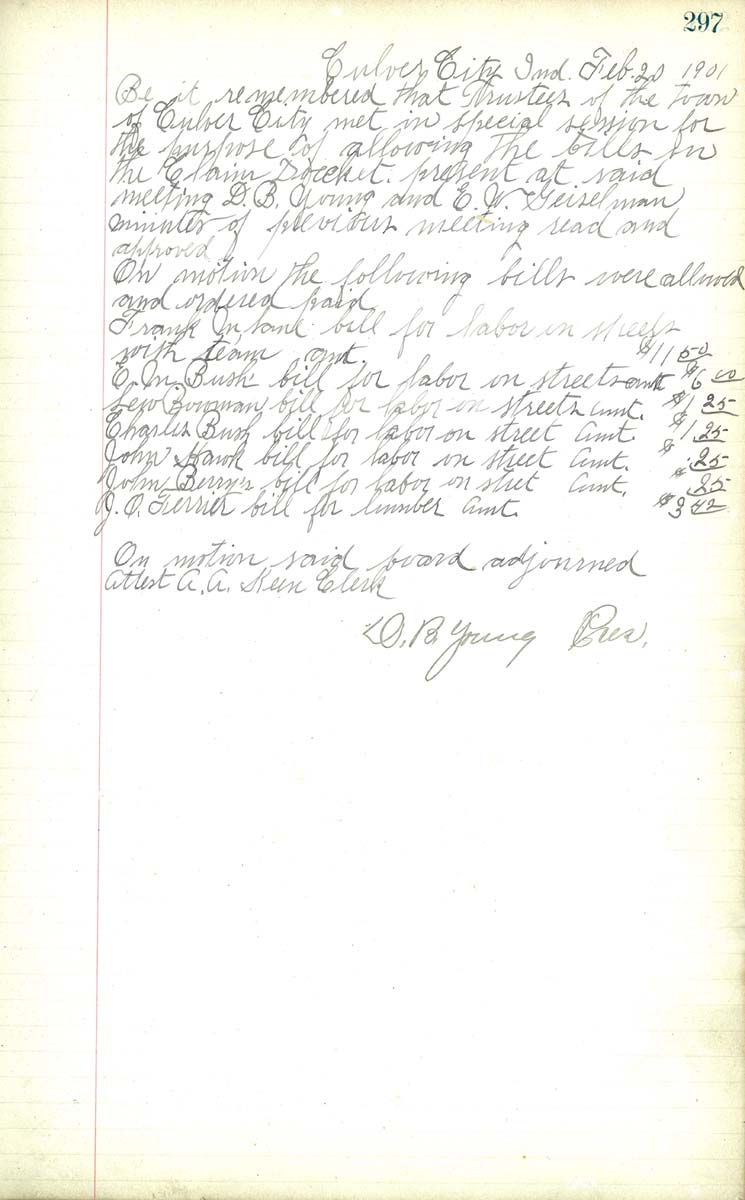 297
Culver City Ind. Feb. 20 1901
Be it remembered that Trustees of the Town
of Culver City met in special session for
the purpose of allowing the bills on
the Claim Doccket. present at said
meeting D. B. Young and E. W. Geiselman
minutes of previous meeting read and
approved
On motion the following bills were allowed
and ordered paid
Frank bill for labor on streets
with team amt. $11 50
E. M. Bush bill for labor on streets amt $6 00
Lew Bowman bill for labor on streets amt. $1 25
Charles Bush bill for labor on street Amt. $1.25
John Hawk bill for labor on street Amt. $.25
John bill for labor on stret Amt. $.25
J. O. Ferrier bill for lumber Amt. $3 42
On motion said board adjourned
Attest A. A. Keen Clerk
D. B. Young Pres.